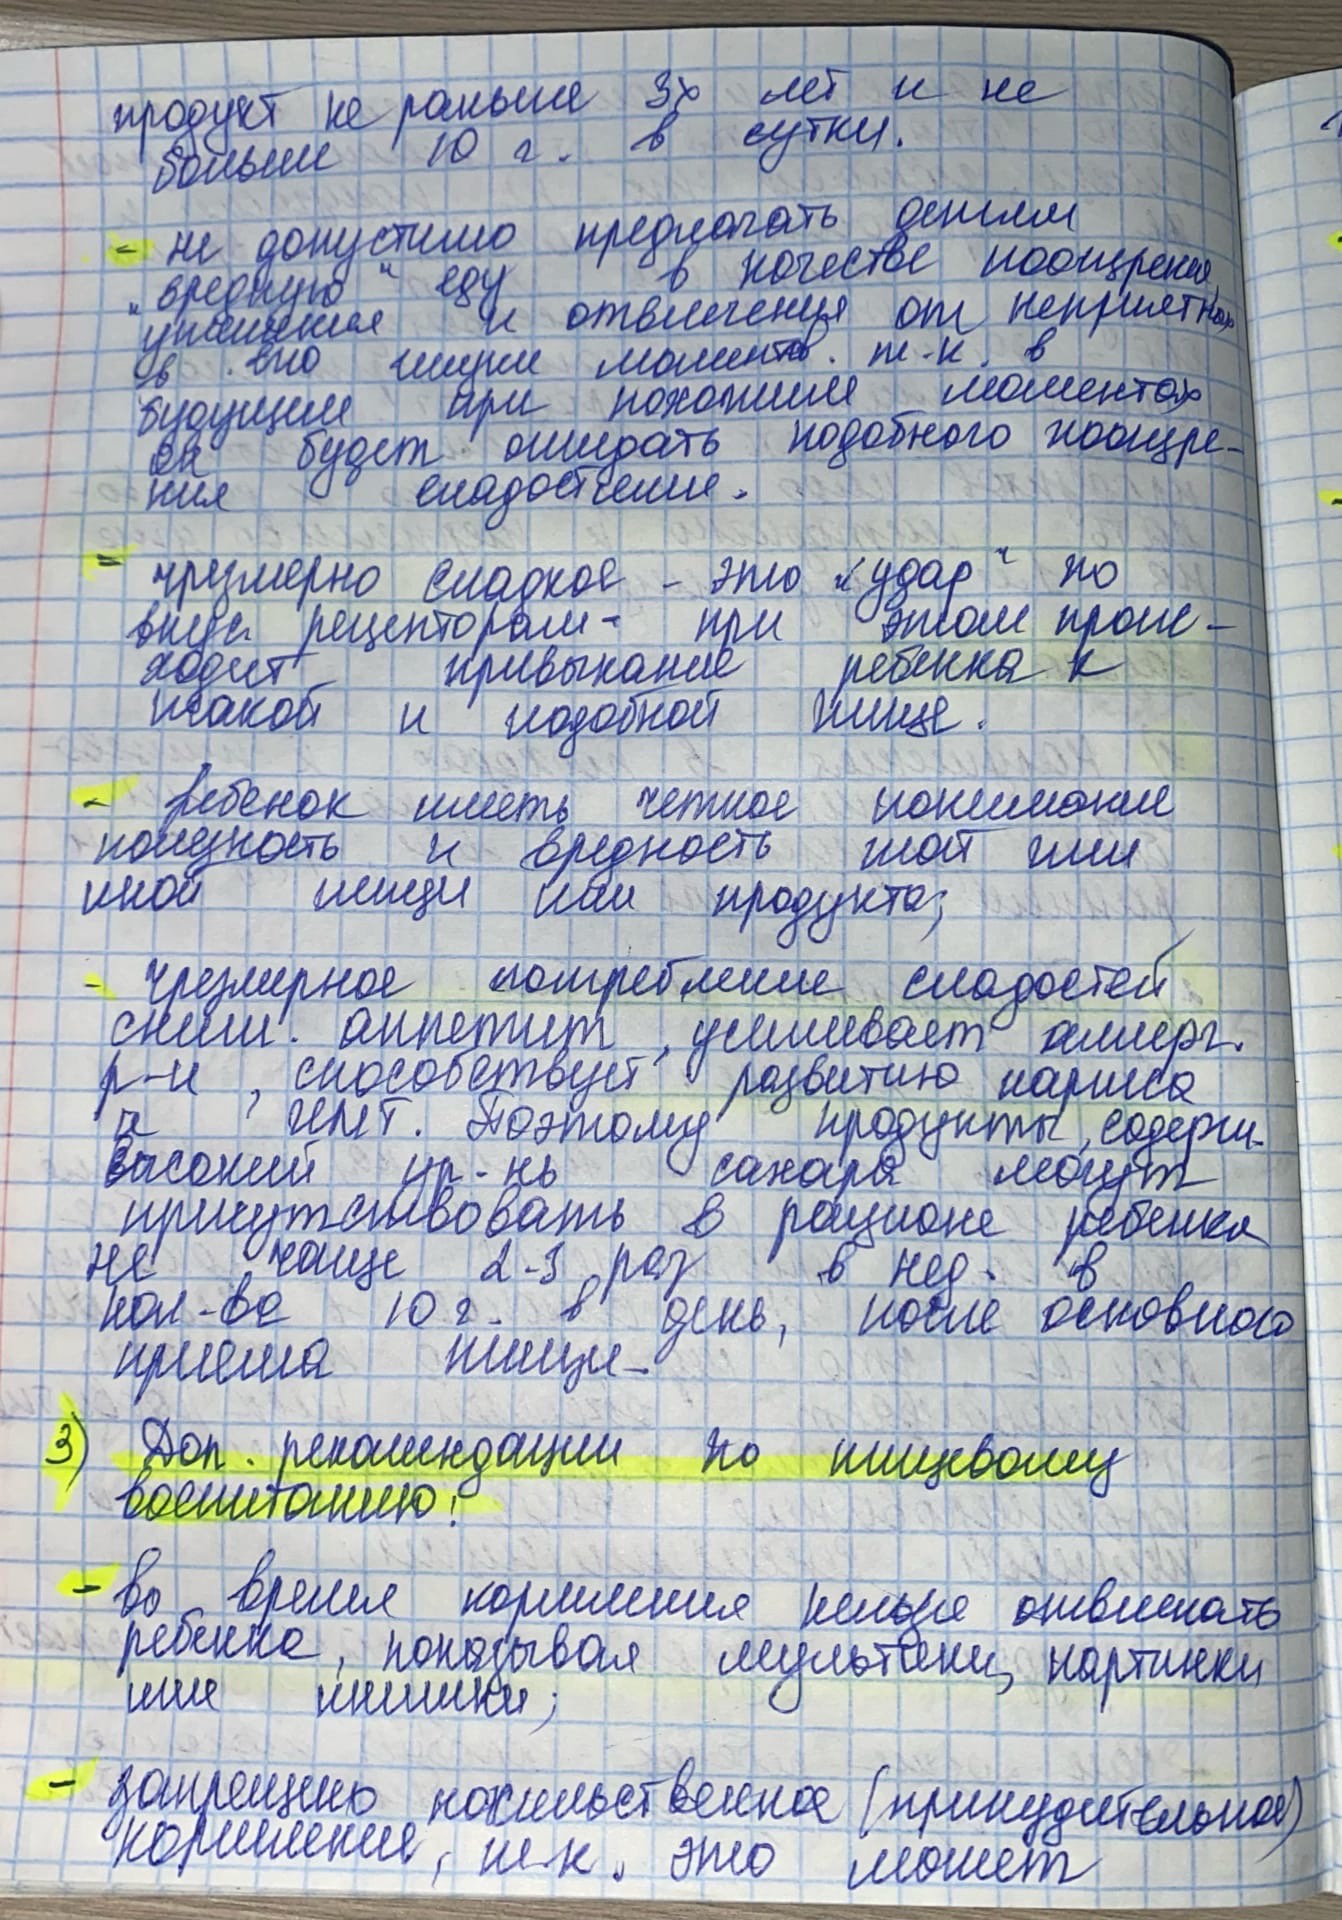 продукт не раньше 3х лет и не
больше 10 г. в сутки.
- не допустимо предлагать детям
"вредную" еду в качестве поощрения,
утешения и отвлечения от неприятных
в его жизни моментов. т-к. в
будущем при похожим моментах
он будет ожидать подобного поощре-
ния сладостями.
- чрезмерно сладкое - это "удар" по
вкус. рецепторам - при этом проис-
ходит привыкание ребенка к
такой и подобной пище.
- ребенок иметь четкое понимание
полезность и вредность той или
иной пищи или продукта;
- чрезмерное потребление сладостей
сниж. аппетит, усиливает аллерг.
р-и, способствует развитию кариеса
и ИМТ. Поэтому продукты, содержи.
высокий ур-нь сахара могут
присутствовать в рационе ребенка
не чаще 2-3 раз в нед. в
кол-ве 10 г. в день, после основного
приема пищи.
3) Доп. рекомендации по пищевому
воспитанию:
- во время кормления нельзя отвлекать
ребенка, показывая мультики, картинки
или книжки;
- запрещено насильственное (принудительное)
кормление, т-к. это может